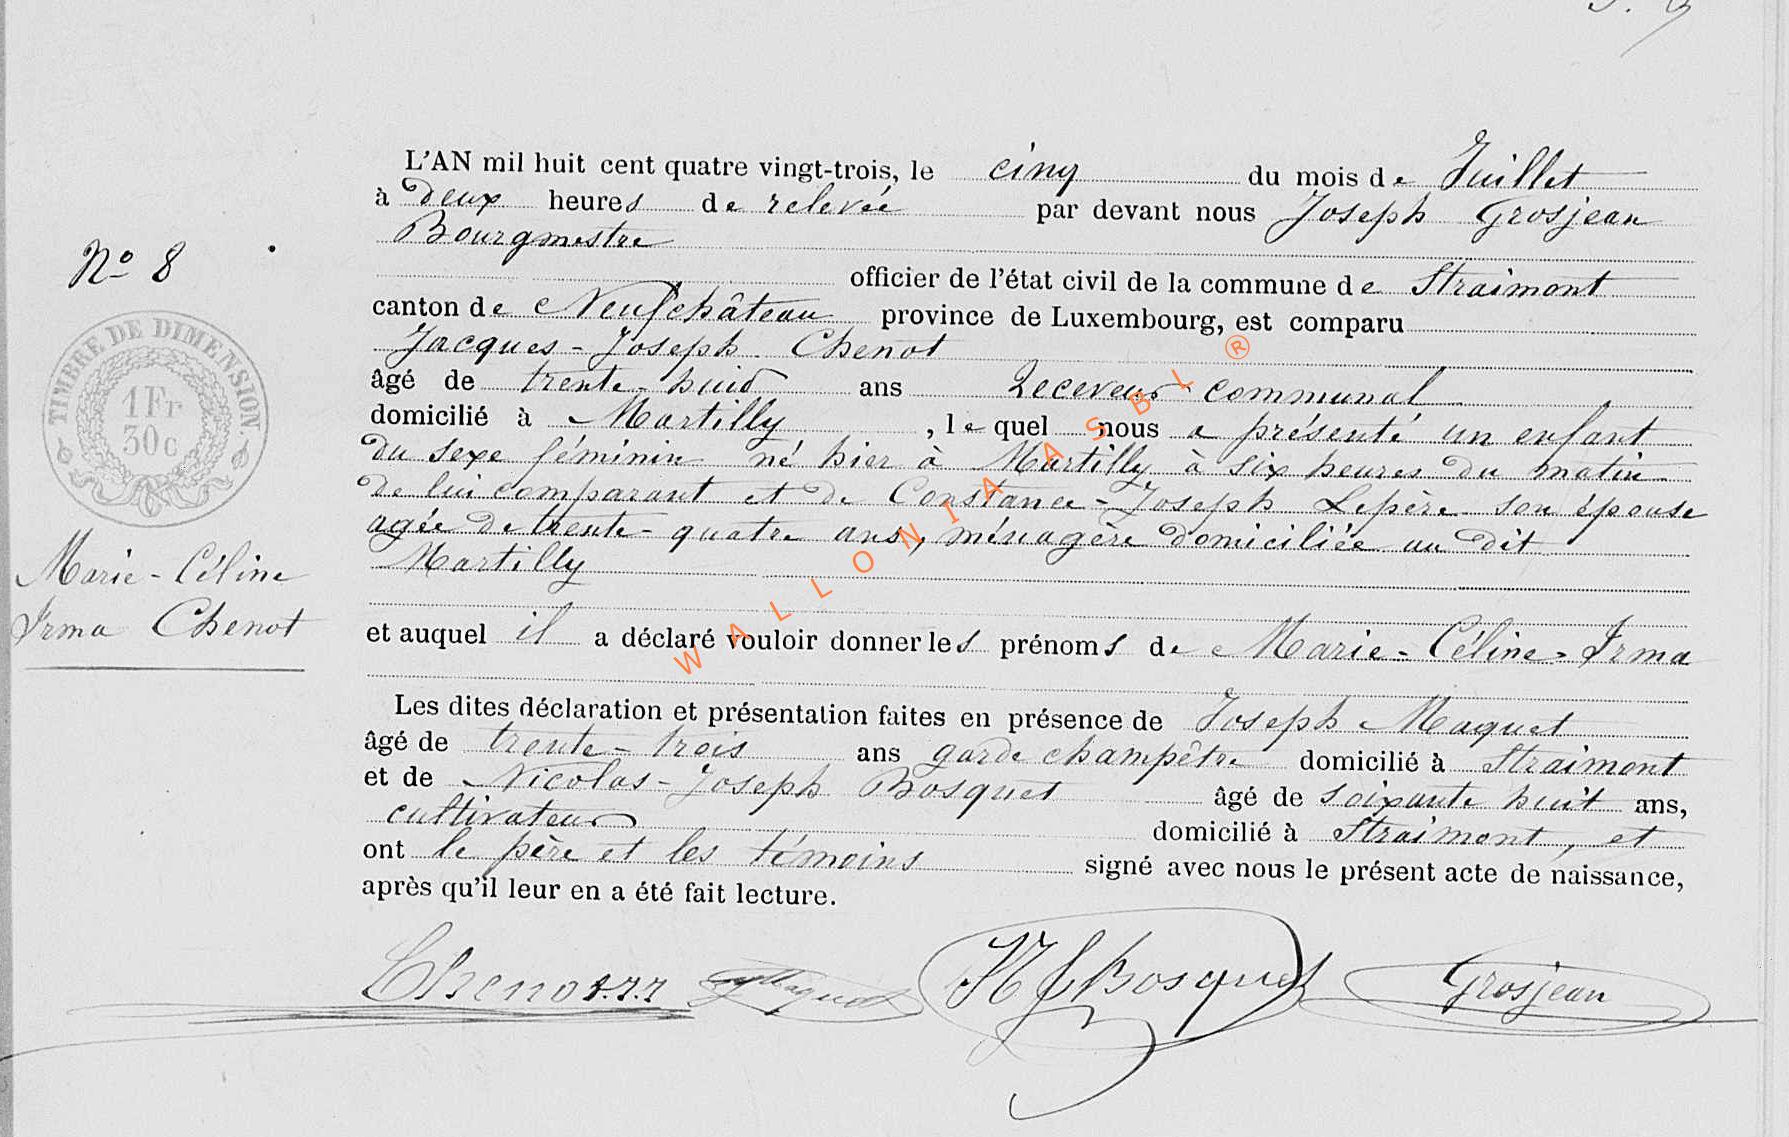 L'AN mil huit cent quatre vingt-trois, le cinq du mois de Juillet
à deux heures de relevée par devant nous Joseph Grosjean
Bourgmestre
Nº 8
officier de l'état civil de la commune de Straimont
canton de Neufchâteau province de Luxembourg, est comparu
Jacques-Joseph Chenot
âgé de trente-huit ans Receveur communal
domicilié à Martilly, lequel nous a présenté un enfant
du sexe féminin né hier à Martilly à six heures du matin
de lui comparant et de Constance-Joseph Lepère son épouse
agée de trente-quatre ans, ménagère domiciliée au dit
Martilly
TIMBRE DE DIMENSION
1 Fr
30c
Marie-Céline
Irma Chenot
et auquel il a déclaré vouloir donner les prénoms de Marie-Céline-Irma
Les dites déclaration et présentation faites en présence de Joseph Maquet
âgé de trente-trois ans garde champêtre domicilié à Straimont
et de Nicolas-Joseph Bosquet âgé de soixante huit ans,
cultivateur domicilié à Straimont, et
ont le père et les témoins signé avec nous le présent acte de naissance,
après qu'il leur en a été fait lecture.
Chenot J.J Maquet NJ Bosquet Grosjean
WALLONIA ASBL ®